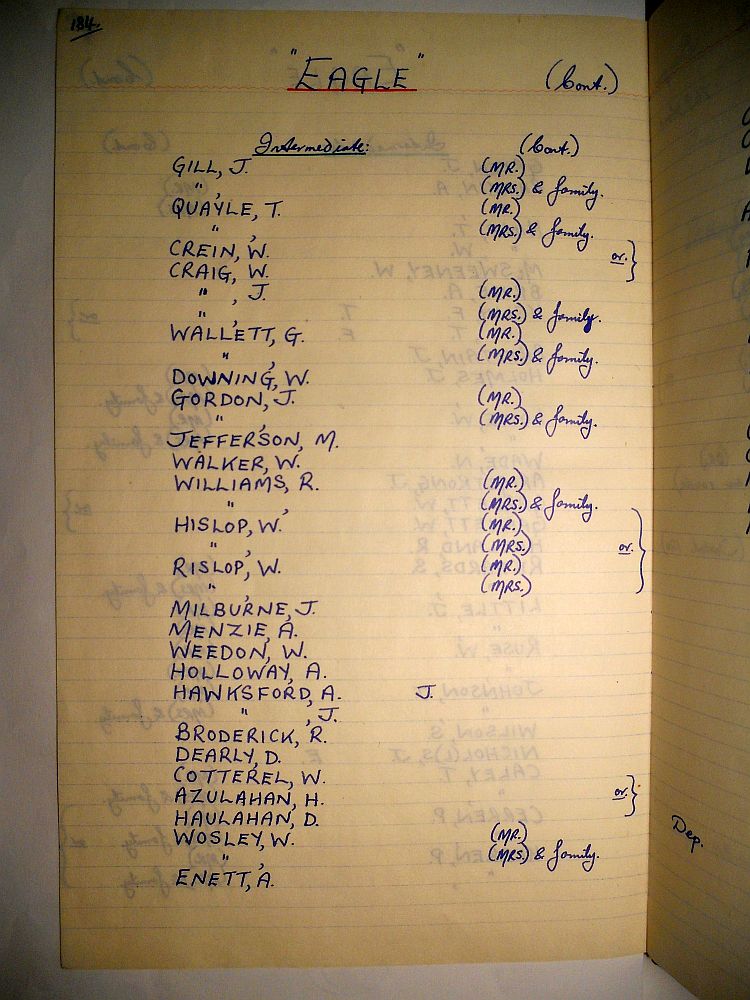 184
"EAGLE" (Cont.)
Intermediate: (Cont.)
GILL, J. (MR.)
" , (MRS.) & family.
QUAYLE, T. (MR.)
" , (MRS.) & family.
CREIN, W. or. }
CRAIG, W.
" , J. (MR.)
" , (MRS.) & family.
WALLETT, G. (MR.)
" , (MRS.) & family.
DOWNING, W.
GORDON, J. (MR.)
" , (MRS.) & family.
JEFFERSON, M.
WALKER, W.
WILLIAMS, R. (MR.)
" , (MRS.) & family.
HISLOP, W. (MR.)
" , (MRS.) or. }
RISLOP, W. (MR.)
" , (MRS.)
MILBURNE, J.
MENZIE, A.
WEEDON, W.
HOLLOWAY, A.
HAWKSFORD, A. J.
" , J.
BRODERICK, R.
DEARLY, D.
COTTEREL, W.
AZULAHAN, H. or. }
HAULAHAN, D.
WOSLEY, W. (MR.)
" , (MRS.) & family.
ENETT, A.
Dep.